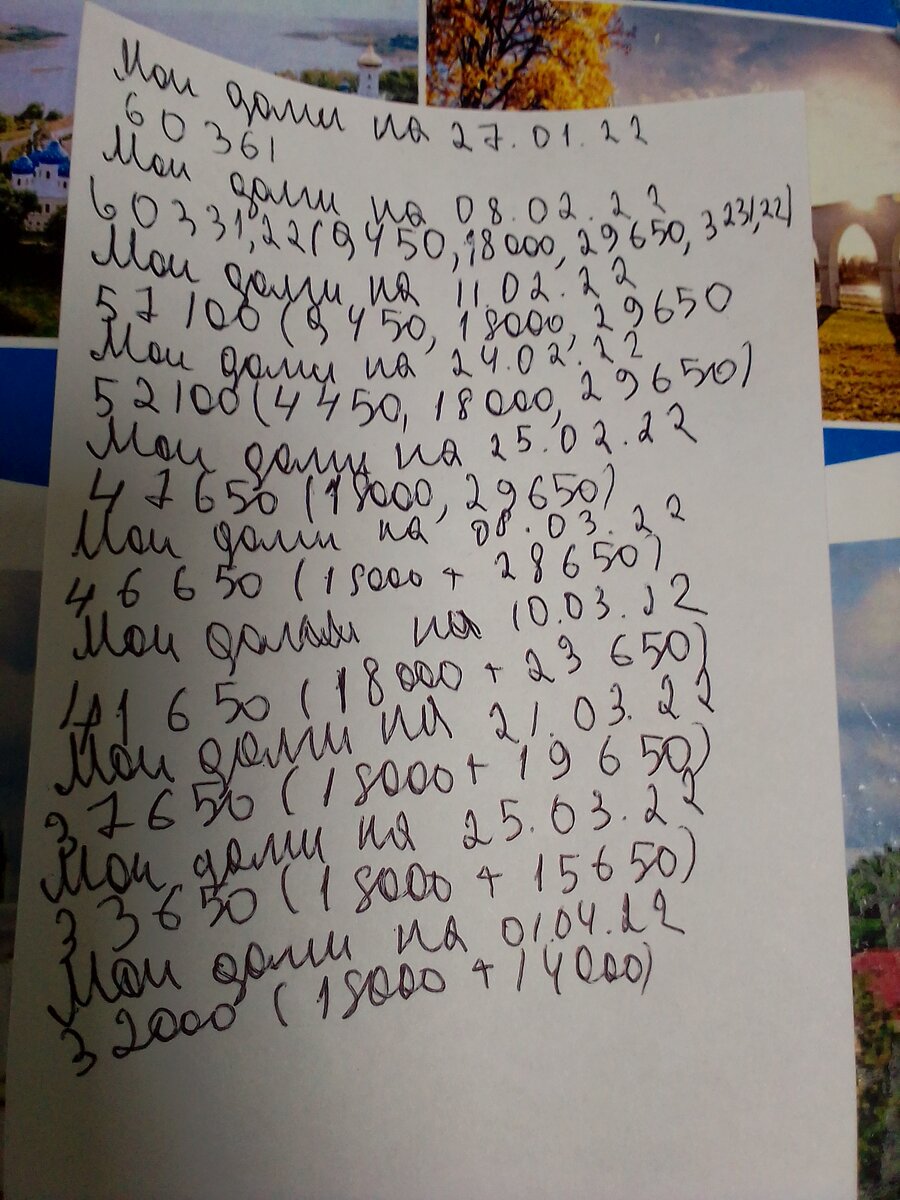 Мои долги на 27.01.22
60361
Мои долги на 08.02.22
60331,22(9450,18000,29650,3231,22)
Мои долги на 11.02.22
57100(9450,18000,29650
Мои долги на 24.02.22
52100(4450,18000,29650)
Мои долги на 25.02.22
47650(18000,29650)
Мои долги на 08.03.22
46650(18000+28650)
Мои на 10.03.22
41650(18000+23650)
Мои долги на 21.03.22
37650(18000+19650)
Мои долги на 25.03.22
33650(18000+15650)
Мои долги на 01.04.22
32000(18000+14000)